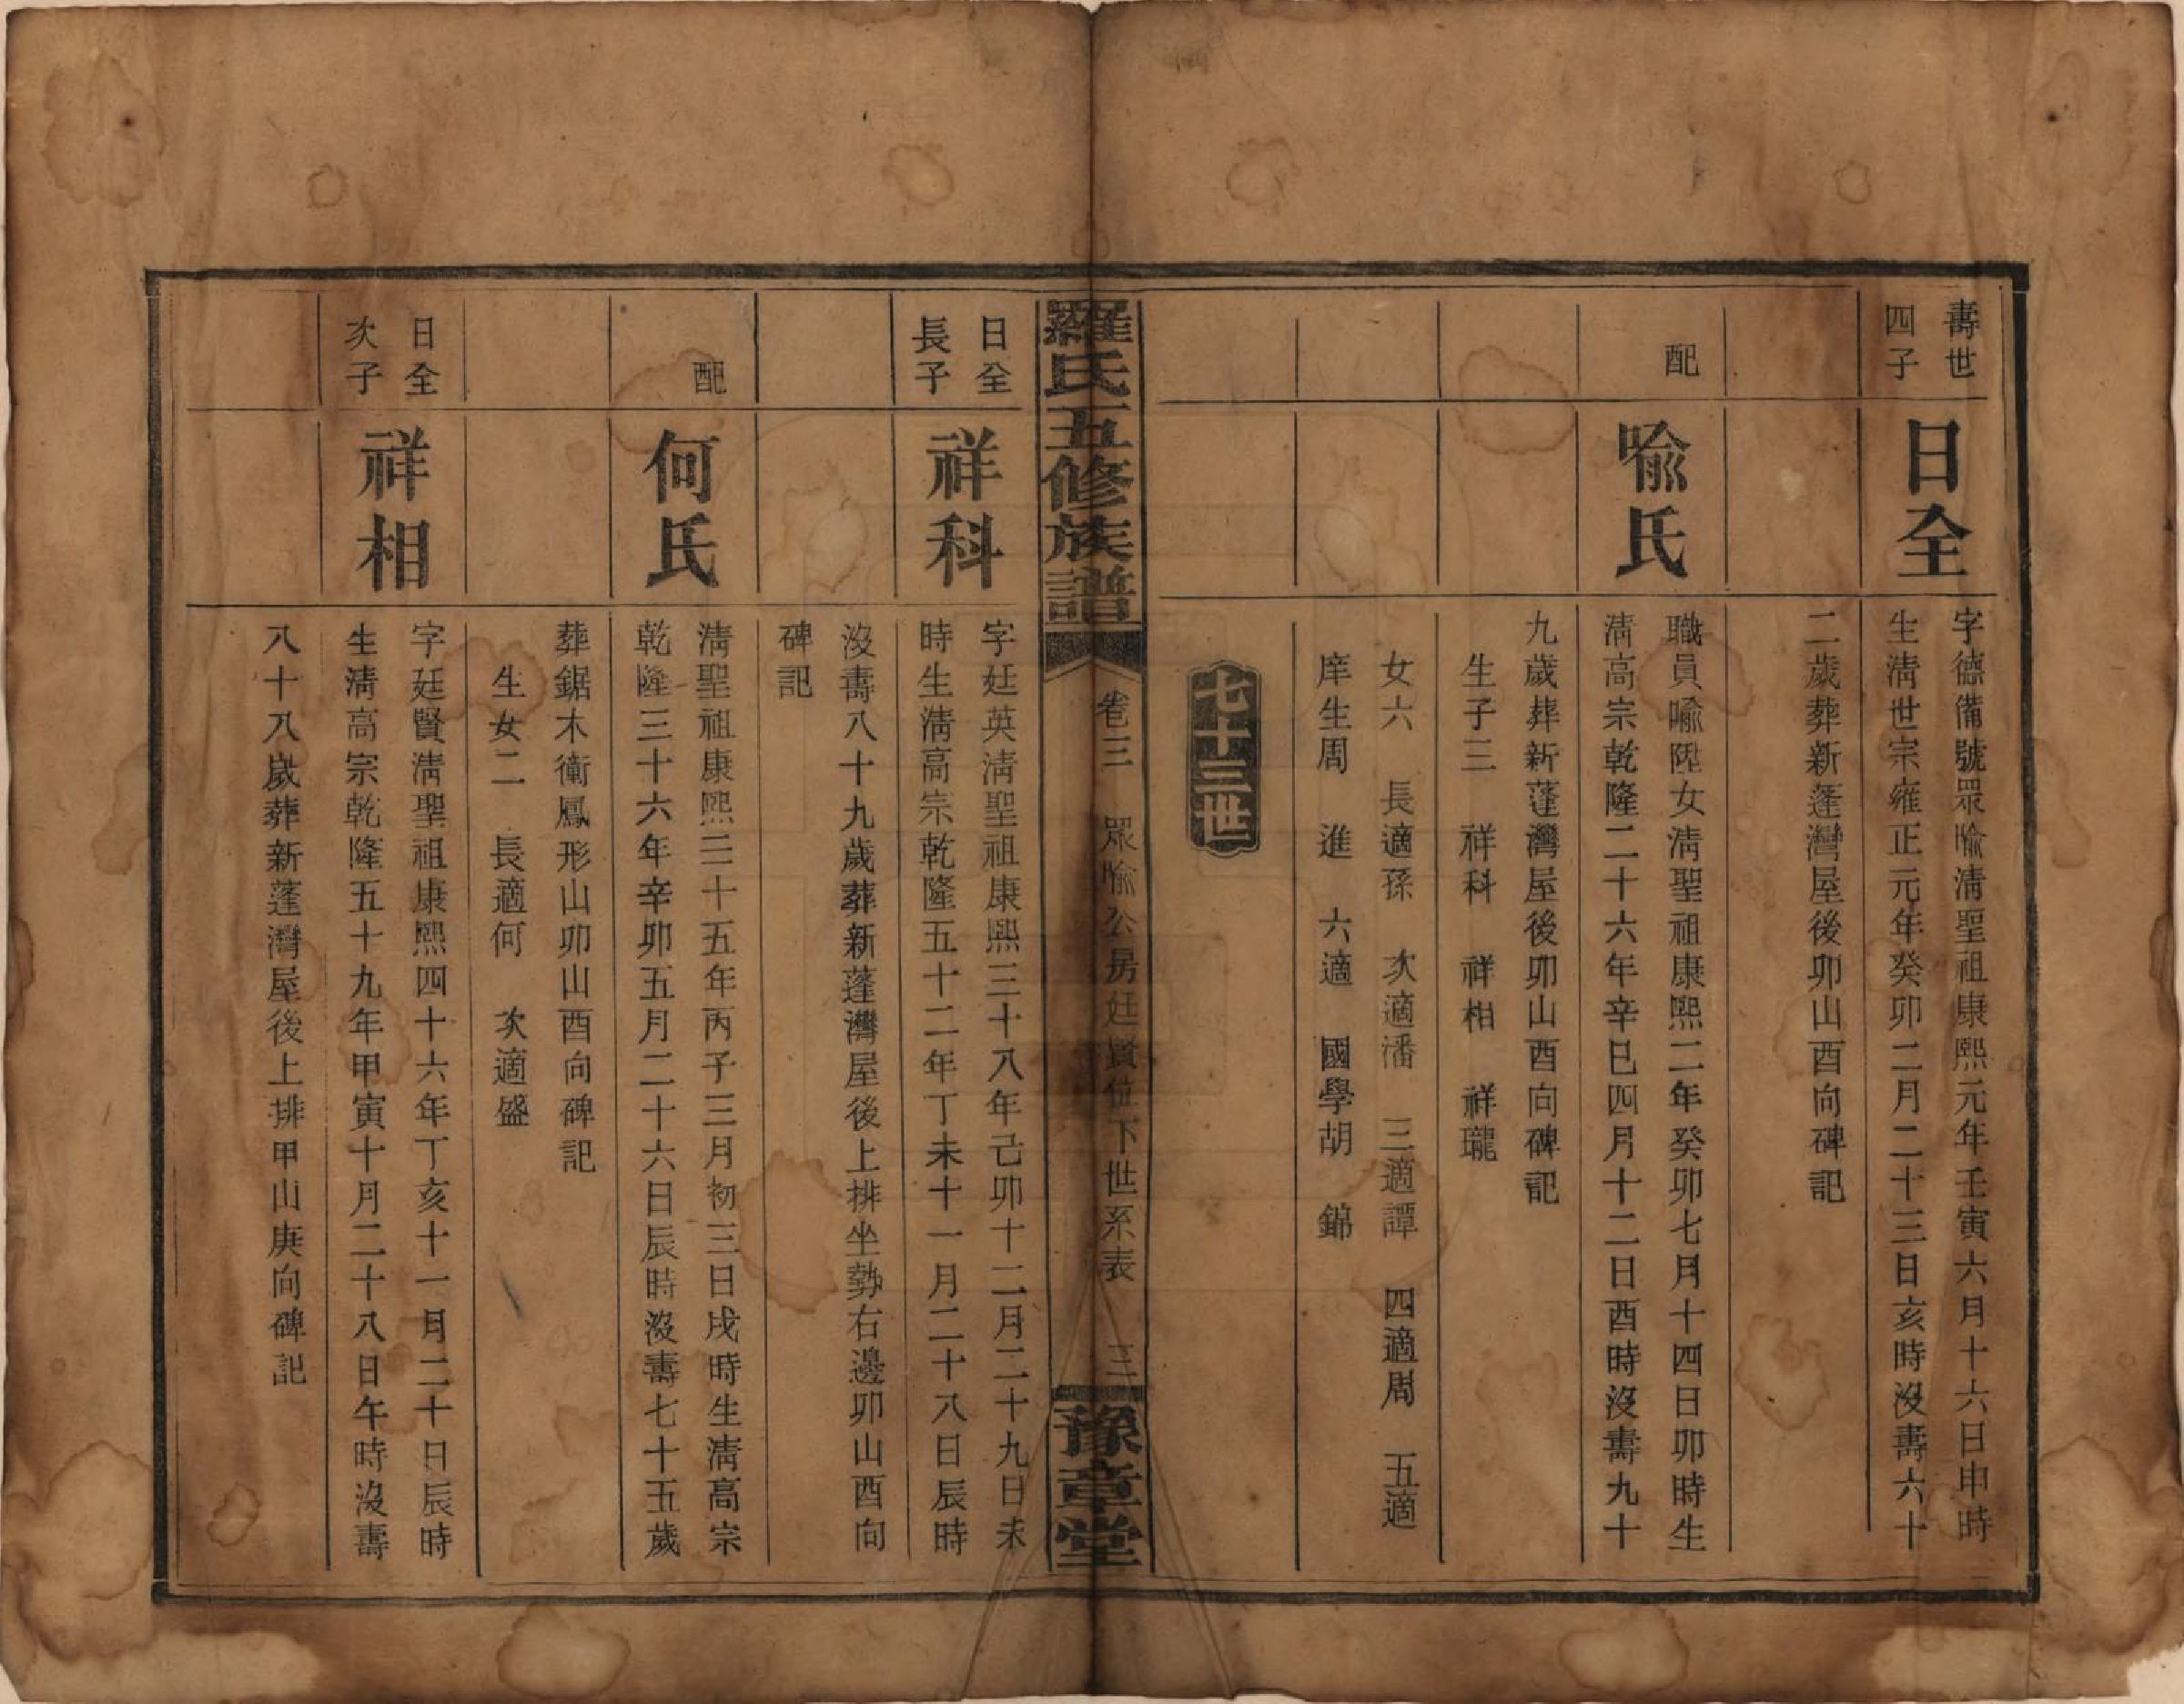 壽世
四子
日全
字德備號眾喻淸聖祖康熙元年壬寅六月十六日申時
生淸世宗雍正元年癸卯二月二十三日亥時沒壽六十
二歲葬新蓬灣屋後卯山酉向碑記
配
喩氏
職員喩陞女淸聖祖康熙二年癸卯七月十四日卯時生
淸高宗乾隆二十六年辛巳四月十二日酉時沒壽九十
九歲葬新蓬灣屋後卯山酉向碑記
生子三 祥科 祥相 祥瓏
女六 長適孫 次適潘 三適譚 四適周 五適
庠生周 進 六適 國學胡 錦
七十三世
羅氏五修族譜
卷三 眾喻公房廷賢位下世系表 三
豫章堂
日全
長子
祥科
字廷英淸聖祖康熙三十八年己卯十二月二十九日未
時生淸高宗乾隆五十二年丁未十一月二十八日辰時
沒壽八十九歲葬新蓬灣屋後上排坐勢右邊卯山酉向
碑記
配
何氏
淸聖祖康熙三十五年丙子三月初三日戌時生淸高宗
乾隆三十六年辛卯五月二十六日辰時沒壽七十五歲
葬鋸木衝鳳形山卯山酉向碑記
生女二 長適何 次適盛
日全
次子
祥相
字廷賢淸聖祖康熙四十六年丁亥十一月二十日辰時
生淸高宗乾隆五十九年甲寅十月二十八日午時沒壽
八十八歲葬新蓬灣屋後上排甲山庚向碑記